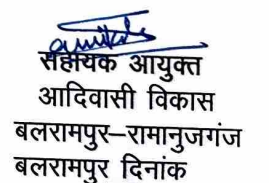 सहायक आयुक्त
आदिवासी विकास
बलरामपुर–रामानुजगंज
बलरामपुर दिनांक